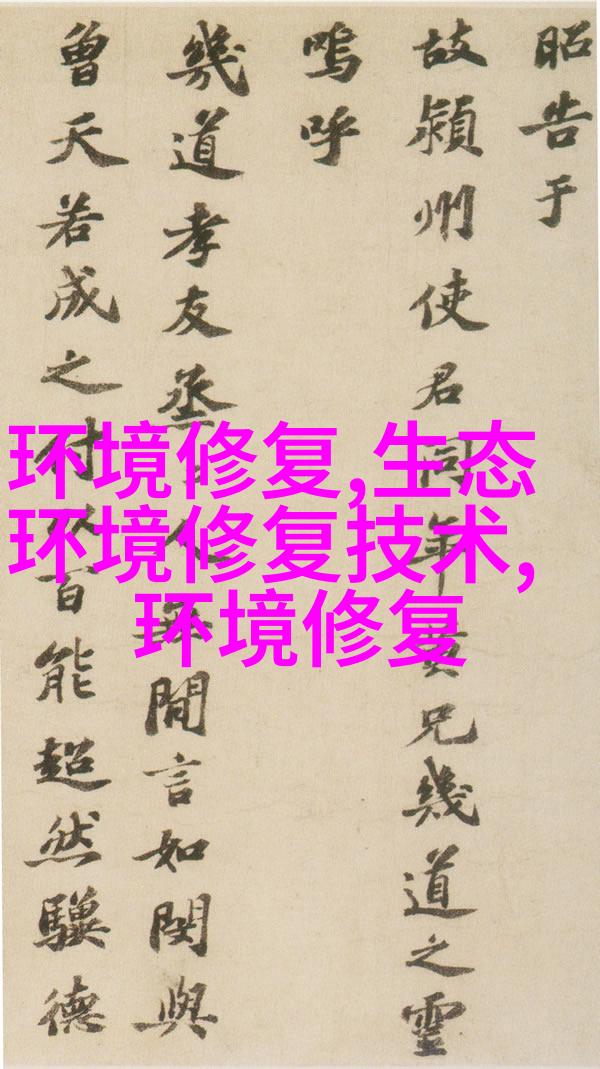 昭告于
故潁州使君同年黃兄幾道之靈
嗚呼
幾道孝友烝〻人無閒言如閔與
曾天若成之付以百能超然驥德
环境修复,生态
环境修复技术,
环境修复